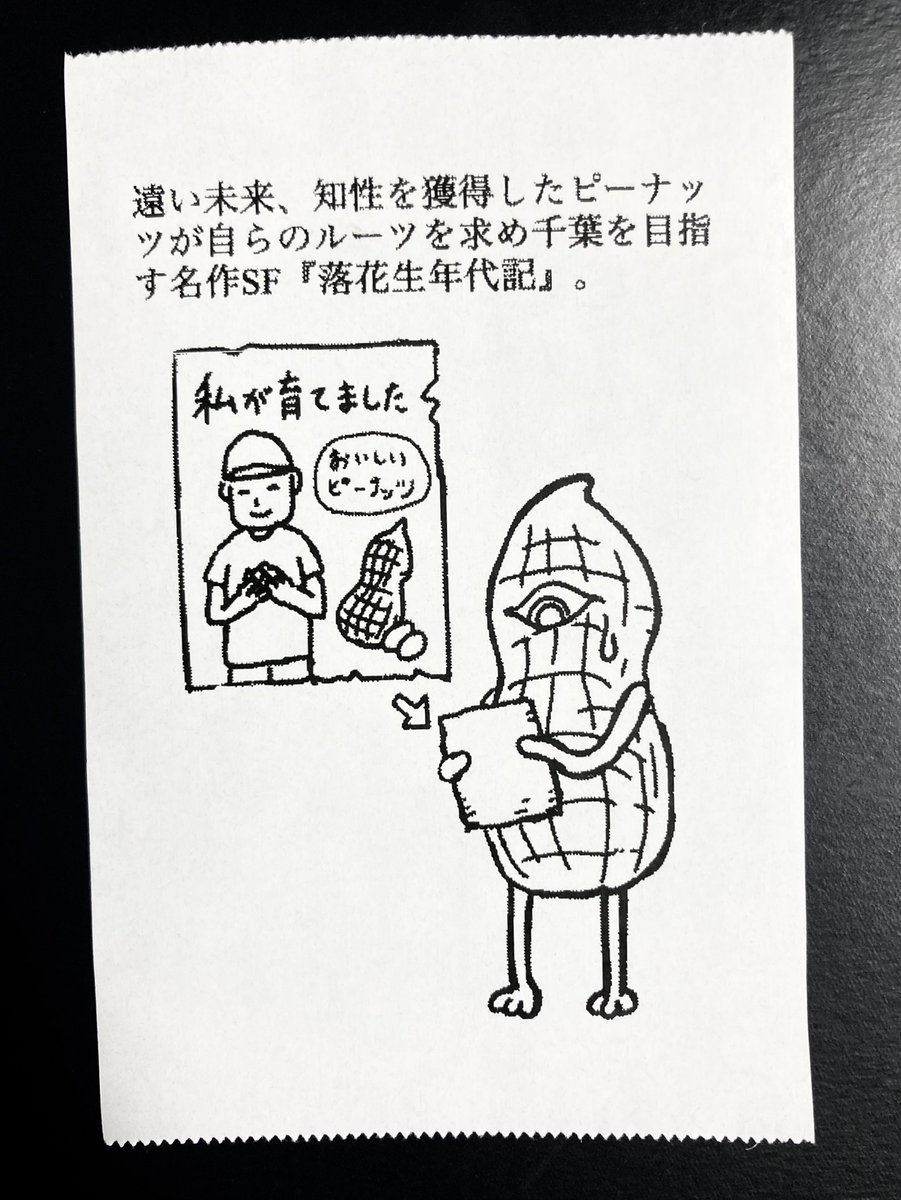 遠い未来、知性を獲得したピーナッ
ツが自らのルーツを求め千葉を目指
す名作SF『落花生年代記』。
私が育てました
おいしい
ピーナッツ